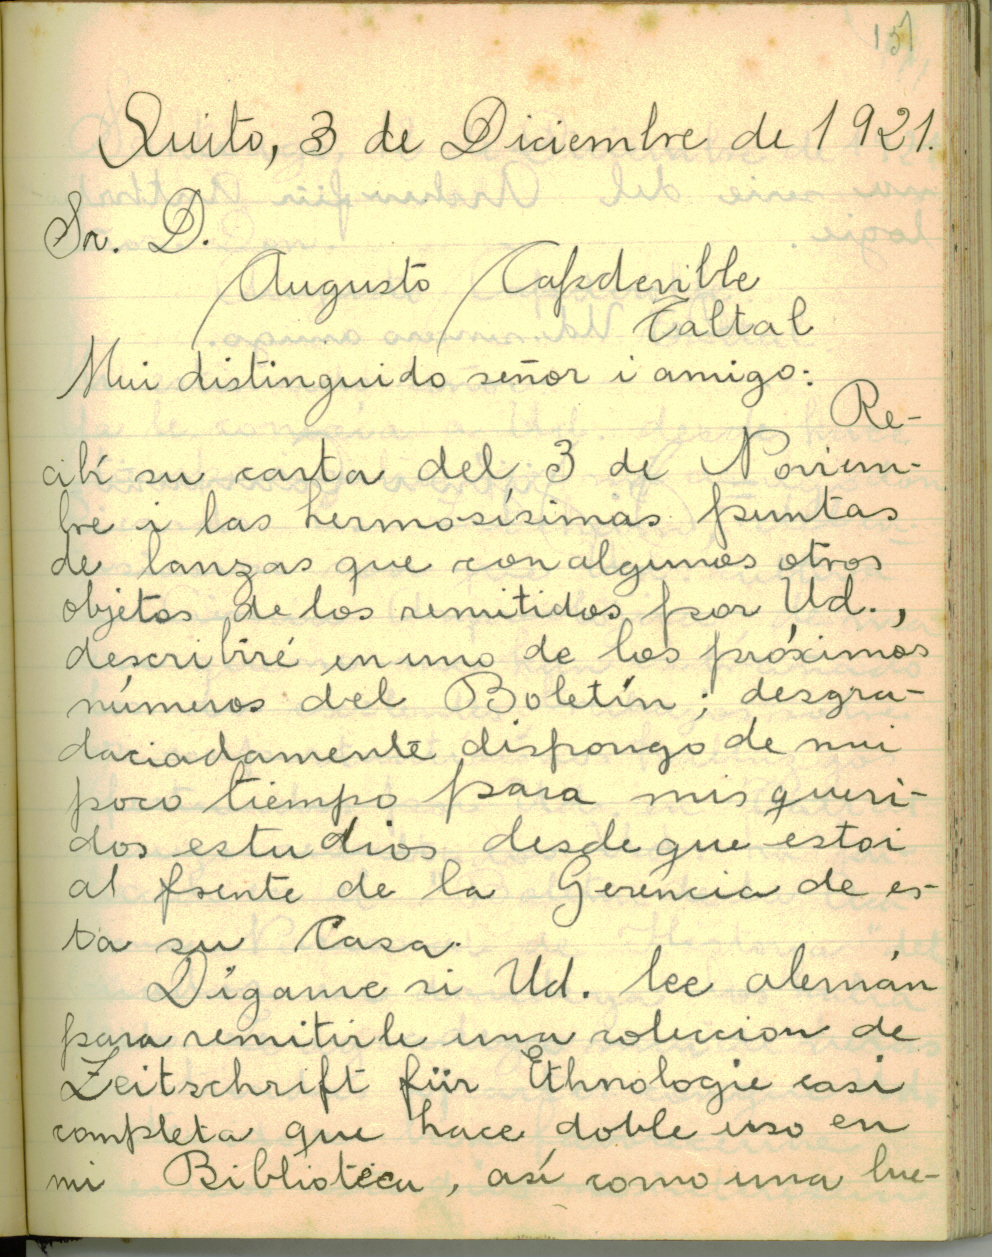 151
Quito, 3 de Diciembre de 1921.
Sr. D.
Augusto Capdeville
Taltal
Mui distinguido señor i amigo:
Re-
cibí su carta del 3 de Noviem-
bre i las hermosísimas puntas
de lanzas que con algunos otros
objetos de los remitidos por Ud.,
describiré en uno de los próximos
números del Boletín; desgra-
daciadamente dispongo de mui
poco tiempo para mis queri-
dos estudios desde que estoi
al frente de la Gerencia de es-
ta su Casa.
Dígame si Ud. lee alemán
para remitirle una coleccion de
Zeitschrift für Ethnologie casi
completa que hace doble uso en
mi Biblioteca, así como una bue-